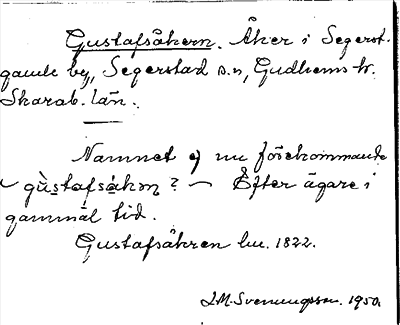 Gustafsåkern. Åker i Segerst-
gaude by, Segerstad s.n, Gudhems hr.
Skarab. län.
Namnet ej nu förekommande
gùstafsåkəɳ? — Efter ägare i
gammal tid.
Gustafsåkren lm. 1822.
J.M. Svennungsson. 1950.